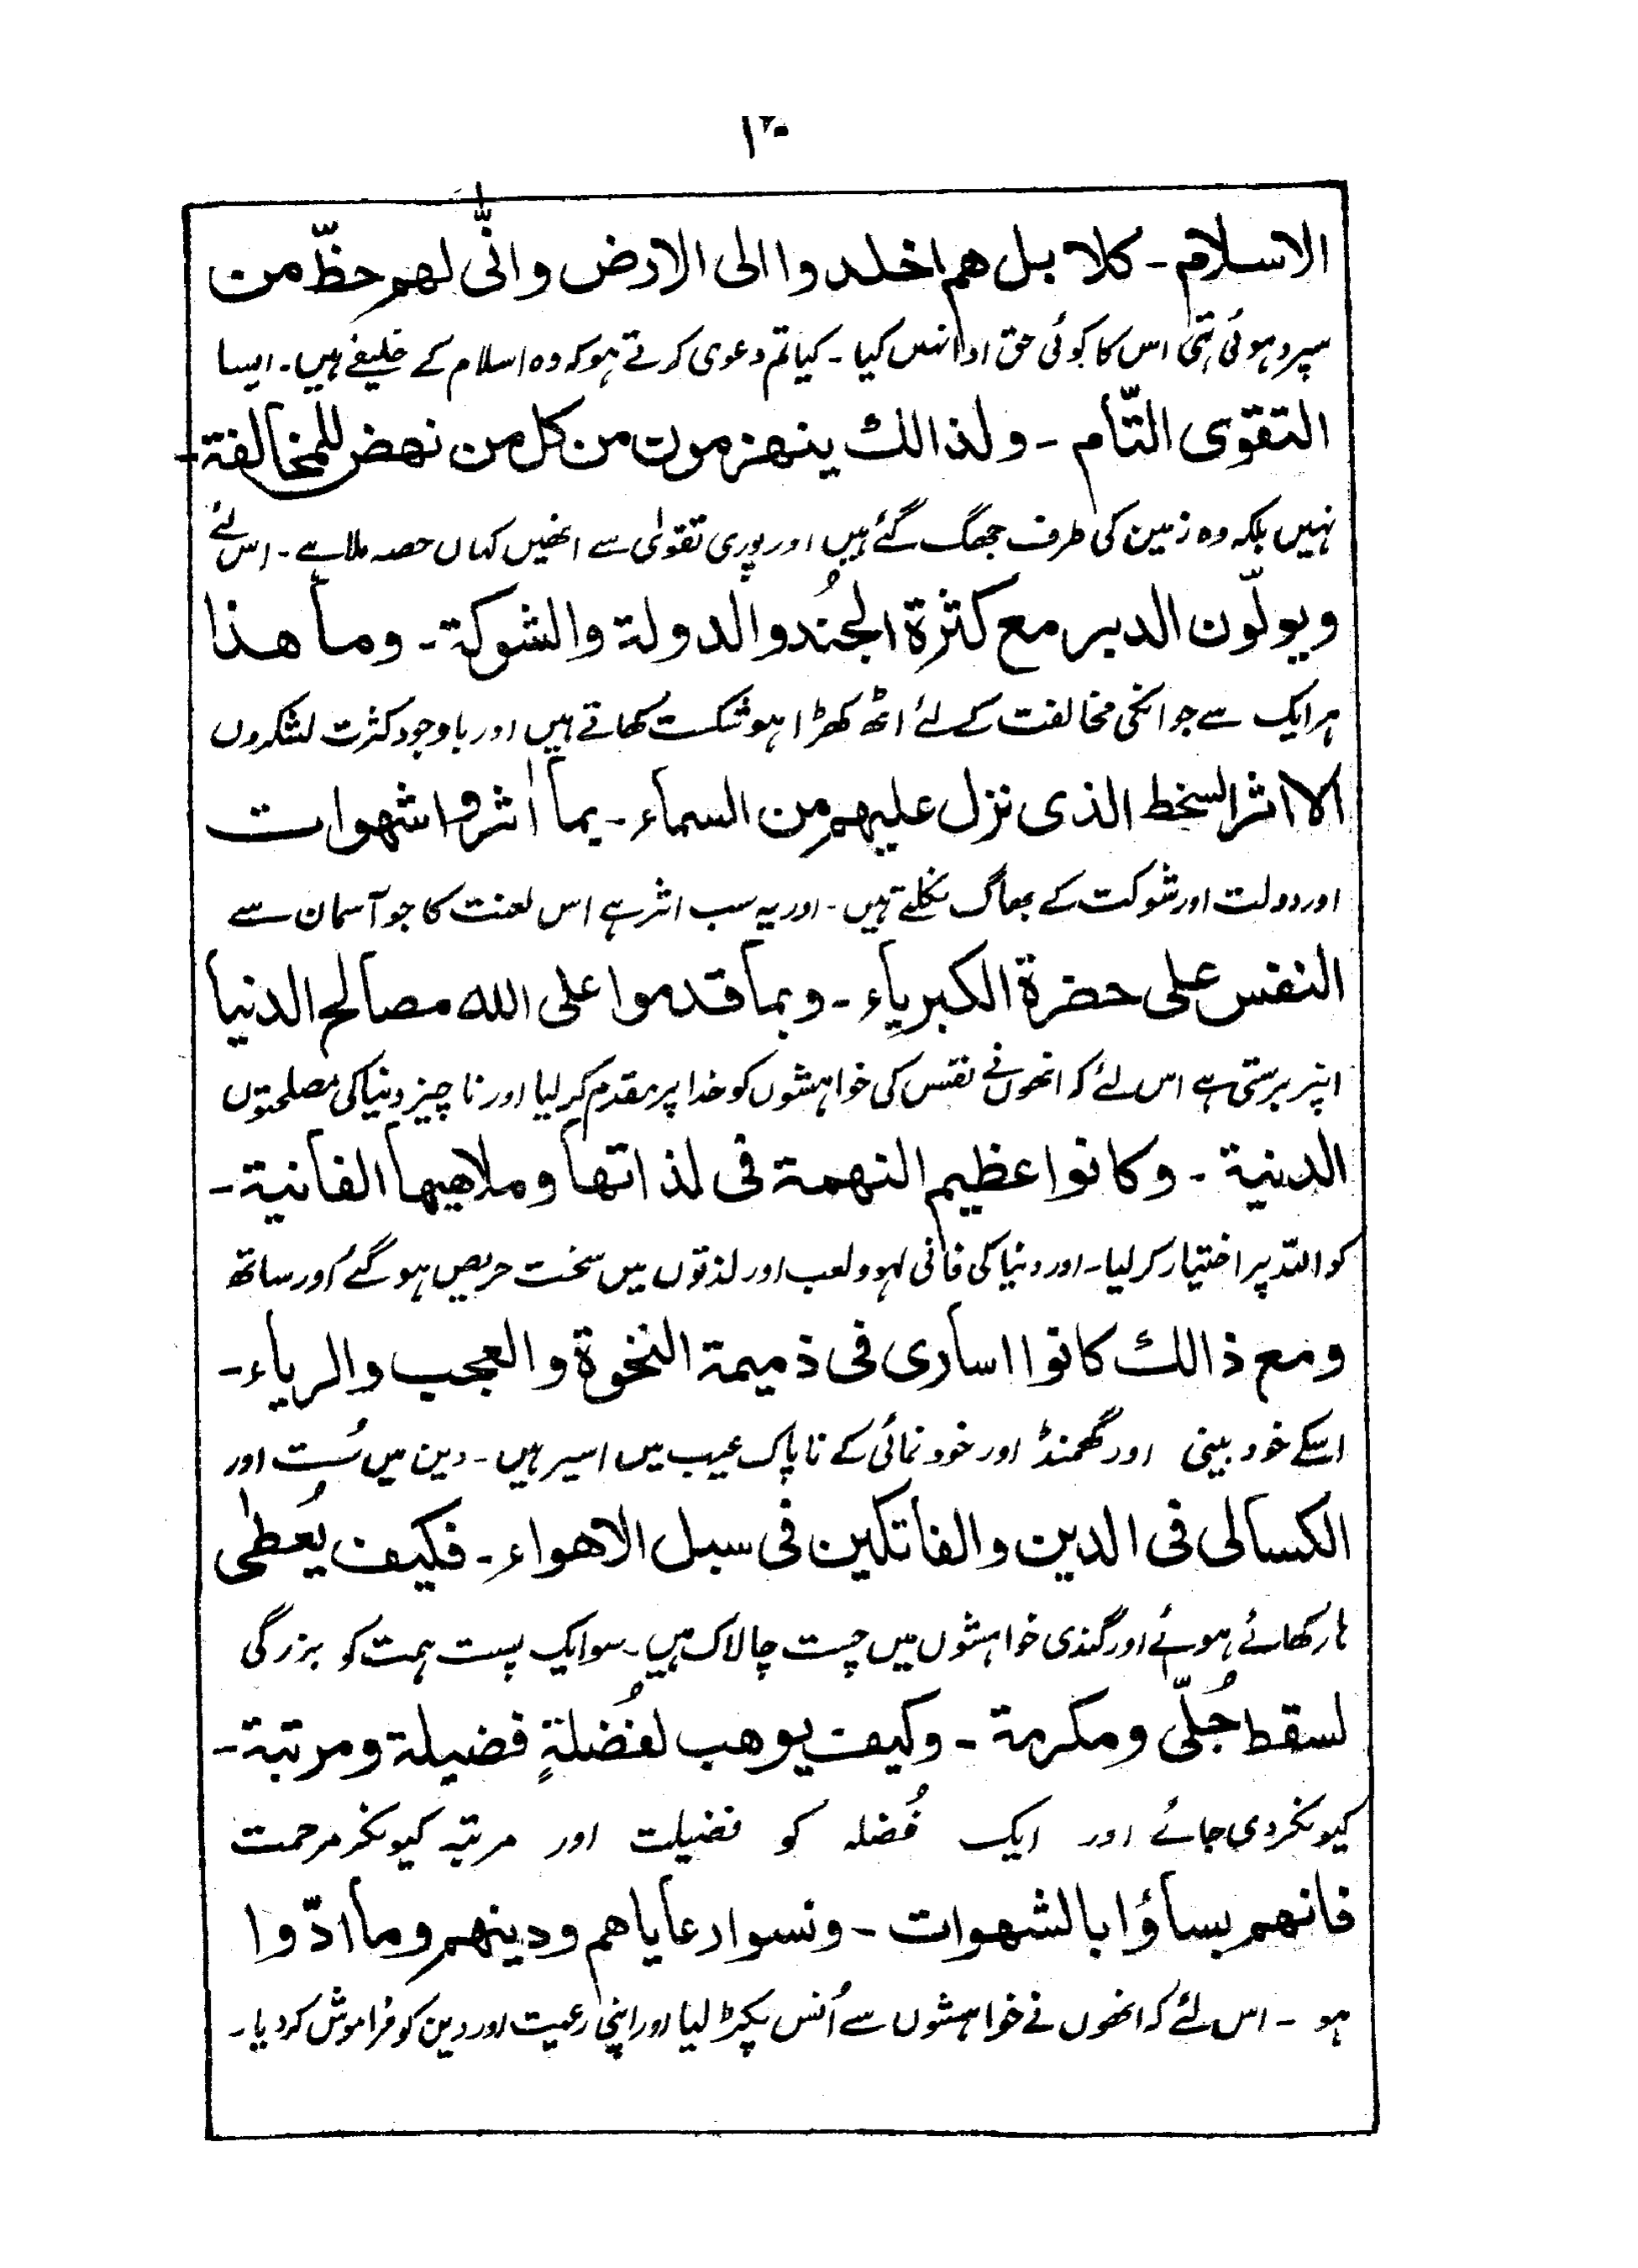 الاسلام۔ كلا بل هم اخلدوا الى الارض وانّٰى لهم حظّ من
سپرد ہوئی تھی اس کا کوئی حق ادا نہیں کیا۔ کیا تم دعوی کرتے ہو کہ وہ اسلام کے خلیفے ہیں۔ ایسا
التقوى التّام ۔ ولذالك ينهزمون من كل من نهض للمخالفة۔
نہیں بلکہ وہ زمین کی طرف جھک گئے ہیں اور پوری تقویٰ سے انھیں کہاں حصہ ملا ہے۔ اس لئے
ويولّون الدبر مع كثرة الجُند والدولة والشوكة۔ وما هذا
ہر ایک سے جو انکی مخالفت کے لئے اٹھ کھڑا ہو شکست کھاتے ہیں اور باوجود کثرت لشکروں
الا اثر السخط الذى نزل عليهم من السماء۔ بما اٰثروا شهوات
اور دولت اور شوکت کے بھاگ نکلتے ہیں۔ اور یہ سب اثر ہے اس لعنت کا جو آسمان سے
النفس على حضرة الكبرياء۔ وبما قدموا على الله مصالح الدنيا
اپنر برستی ہے اس لئے کہ انھوں نے نفس کی خواہشوں کو خدا پر مقدم کر لیا اور ناچیز دنیا کی مصلحتوں
الدنية ۔ وكانوا عظيم النهمة فى لذاتها وملاهيها الفانية۔
کو اللہ پر اختیار کر لیا۔ اور دنیا کی فانی لہو و لعب اور لذتوں میں سخت حریص ہو گئے اور ساتھ
ومع ذالك كانوا اسارى فى ذميمة النخوة والعجب والرياء۔
اسکے خود بینی اور گھمنڈ اور خود نمائی کے ناپاک عیب میں اسیر ہیں۔ دین میں سُست اور
الكسالى فى الدين والفاتكين فى سبل الاهواء۔ فكيف يُعطٰى
ہار کھائے ہوئے اور گندی خواہشوں میں چست چالاک ہیں۔ سو ایک پست ہمت کو بزرگی
لسقط جُلّى ومكرمة ۔ وكيف يوهب لفُضلةٍ فضيلة ومرتبة۔
کیونکر دی جائے اور ایک فُضلہ کو فضیلت اور مرتبہ کیونکر مرحمت
فانهم بساؤا بالشهوات۔ ونسوا رعاياهم ودينهم وما ادّوا
ہو ۔ اس لئے کہ انھوں نے خواہشوں سے اُنس پکڑ لیا اور اپنی رعیت اور دین کو فراموش کر دیا۔